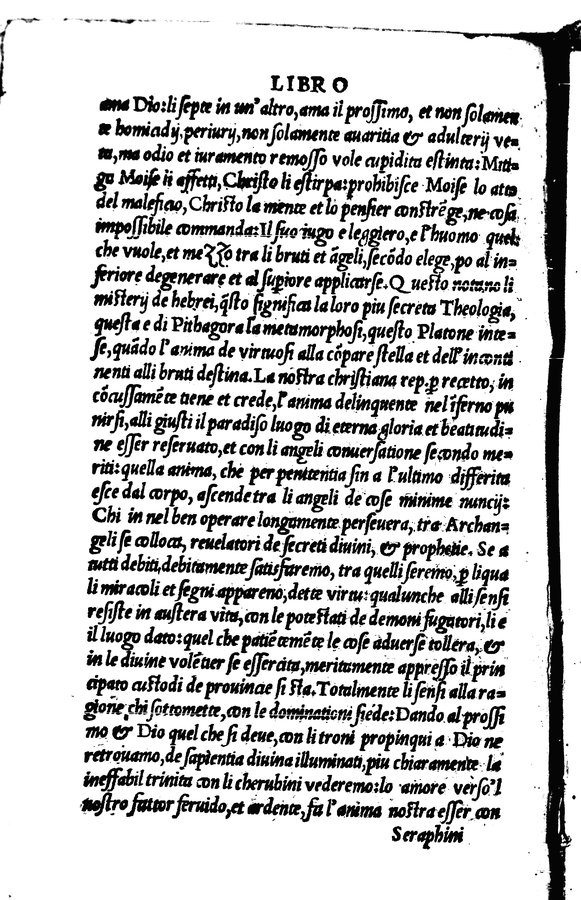 LIBRO
ama Dio: li ſepte in un' altro, ama il proſſimo, et non ſolamen
te homiadij, periurij, non ſolamente auaritia & adulterij ve=
ta, ma odio et iuramento remoſſo vole cupidita eſtinta: Miti=
ga Moiſe li affetti, Chriſto li eſtirpa: prohibiſce Moiſe lo atto
del maleficio, Chriſto la mente et lo penſier conſtrēge, ne coſa
impoſſibile commanda: Il ſuo iugo e leggiero, e l'huomo quel
che vuole, et mezzo tra li bruti et āgeli, ſecōdo elege, po al in=
feriore degenerare et al ſupiore applicarſe. Queſto notano li
miſterij de hebrei, q̄ſto ſignifica la loro piu ſecreta Theologia,
queſta e di Pithagora la metamorphoſi, queſto Platone inte=
ſe, quādo l'anima de virtuoſi alla cōpare ſtella et dell' inconti
nenti alli bruti deſtina. La noſtra chriſtiana rep. ꝑ recetto, in
cōcuſſamēte tiene et crede, l'anima delinquente nel īferno pu
nirſi, alli giuſti il paradiſo luogo di eterna gloria et beatitudi=
ne eſſer reſeruato, et con li angeli conuerſatione ſecondo me=
riti: quella anima, che per penitentia fin a l'ultimo differita
eſce dal corpo, aſcende tra li angeli de coſe minime nuncij:
Chi in nel ben operare longamente perſeuera, tra Archan=
geli ſe colloca, reuelatori de ſecreti diuini, & prophetie. Se a
tutti debiti, debitamente ſatisfaremo, tra quelli ſeremo, ꝑ liqua
li miracoli et ſegni appareno, dette virtu: qualunche alli ſenſi
reſiſte in auſtera vita, con le poteſtati de demoni fugatori, li e
il luogo dato: quel che patiētemēte le coſe aduerſe tollera, &
in le diuine volētier ſe eſſercita, meritamente appreſſo il prin
cipato cuſtodi de prouincie ſi ſta. Totalmente li ſenſi alla ra=
gione chi ſottomette, con le dominationi ſiede: Dando al proſſi
mo & Dio quel che ſi deue, con li troni propinqui a Dio ne
retrouamo, de ſapientia diuina illuminati, piu chiaramente la
ineffabil trinita con li cherubini vederemo: lo amore verſo 'l
noſtro fattor feruido, et ardente, fa l'anima noſtra eſſer con
Seraphini